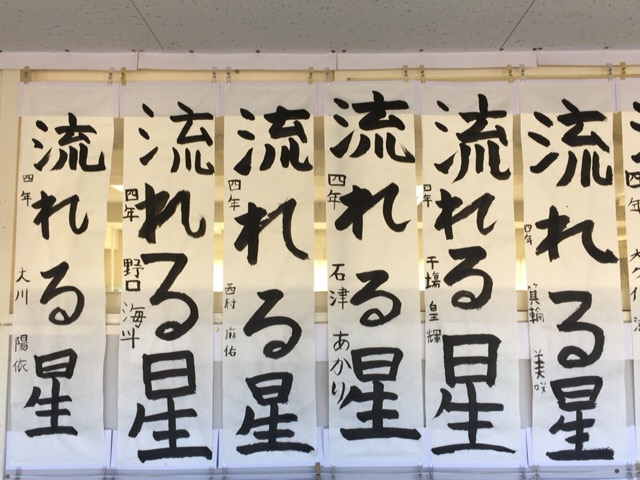 流れる星
四年 大川 陽依
流れる星
四年 野口 海斗
流れる星
四年 西村 麻佑
流れる星
四年 石津 あかり
流れる星
四年 干場 皇輝
流れる星
四年 箕輪 美咲
四年